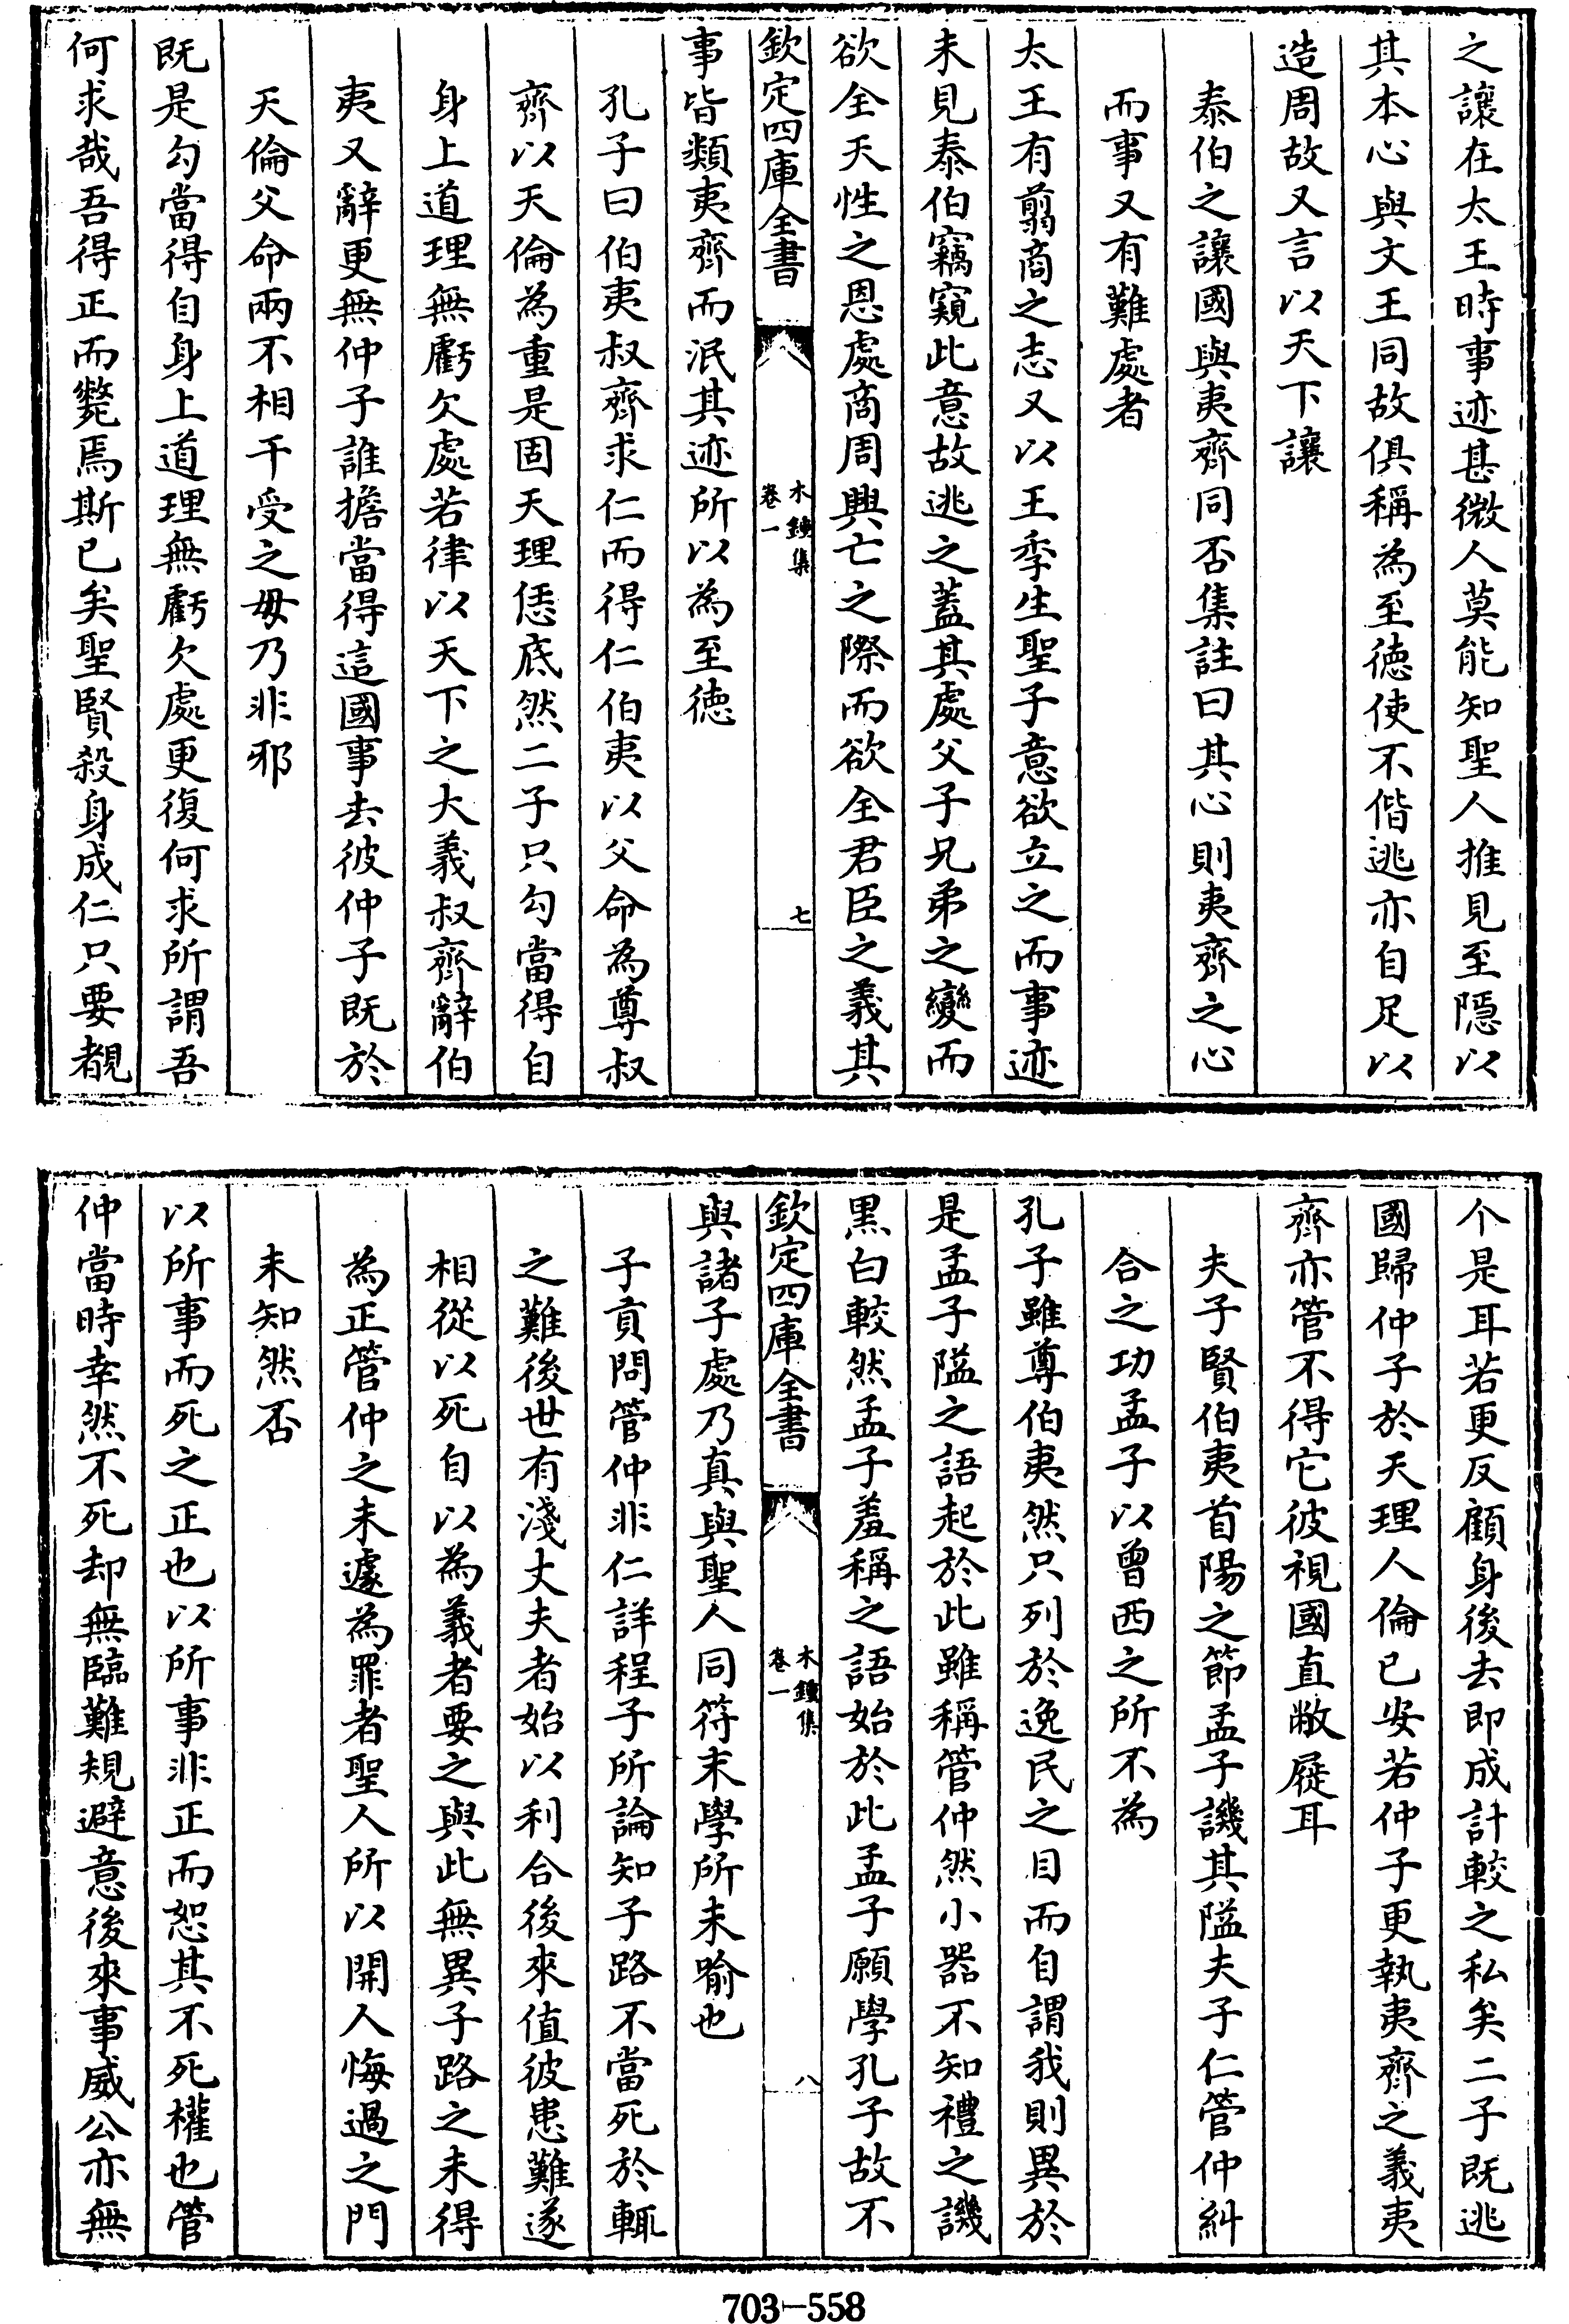 之讓在太王時事迹甚微人莫能知聖人推見至隱以
其本心與文王同故俱稱為至徳使不偕逃亦自足以
造周故又言以天下讓
泰伯之讓國與夷齊同否集註曰其心則夷齊之心
而事又有難處者
太王有翦商之志又以王季生聖子意欲立之而事迹
未見泰伯竊窺此意故逃之蓋其處父子兄弟之變而
欲全天性之恩處商周興亡之際而欲全君臣之義其
欽定四庫全書
木鍾集
卷一
七
事皆類夷齊而泯其迹所以為至徳
孔子曰伯夷叔齊求仁而得仁伯夷以父命為尊叔
齊以天倫為重是固天理恁底然二子只勾當得自
身上道理無虧欠處若律以天下之大義叔齊辭伯
夷又辭更無仲子誰擔當得這國事去彼仲子既於
天倫父命兩不相干受之毋乃非邪
既是勾當得自身上道理無虧欠處更復何求所謂吾
何求哉吾得正而斃焉斯已矣聖賢殺身成仁只要覩
个是耳若更反顧身後去即成計較之私矣二子既逃
國歸仲子於天理人倫已安若仲子更執夷齊之義夷
齊亦管不得它彼視國直敝屣耳
夫子賢伯夷首陽之節孟子譏其隘夫子仁管仲糾
合之功孟子以曾西之所不為
孔子雖尊伯夷然只列於逸民之目而自謂我則異於
是孟子隘之語起於此雖稱管仲然小器不知禮之譏
黒白較然孟子羞稱之語始於此孟子願學孔子故不
欽定四庫全書
木鍾集
卷一
八
與諸子處乃真與聖人同符末學所未喻也
子貢問管仲非仁詳程子所論知子路不當死於輒
之難後世有淺丈夫者始以利合後來值彼患難遂
相從以死自以為義者要之與此無異子路之未得
為正管仲之未遽為罪者聖人所以開人悔過之門
未知然否
以所事而死之正也以所事非正而恕其不死權也管
仲當時幸然不死却無臨難規避意後來事威公亦無
703-558